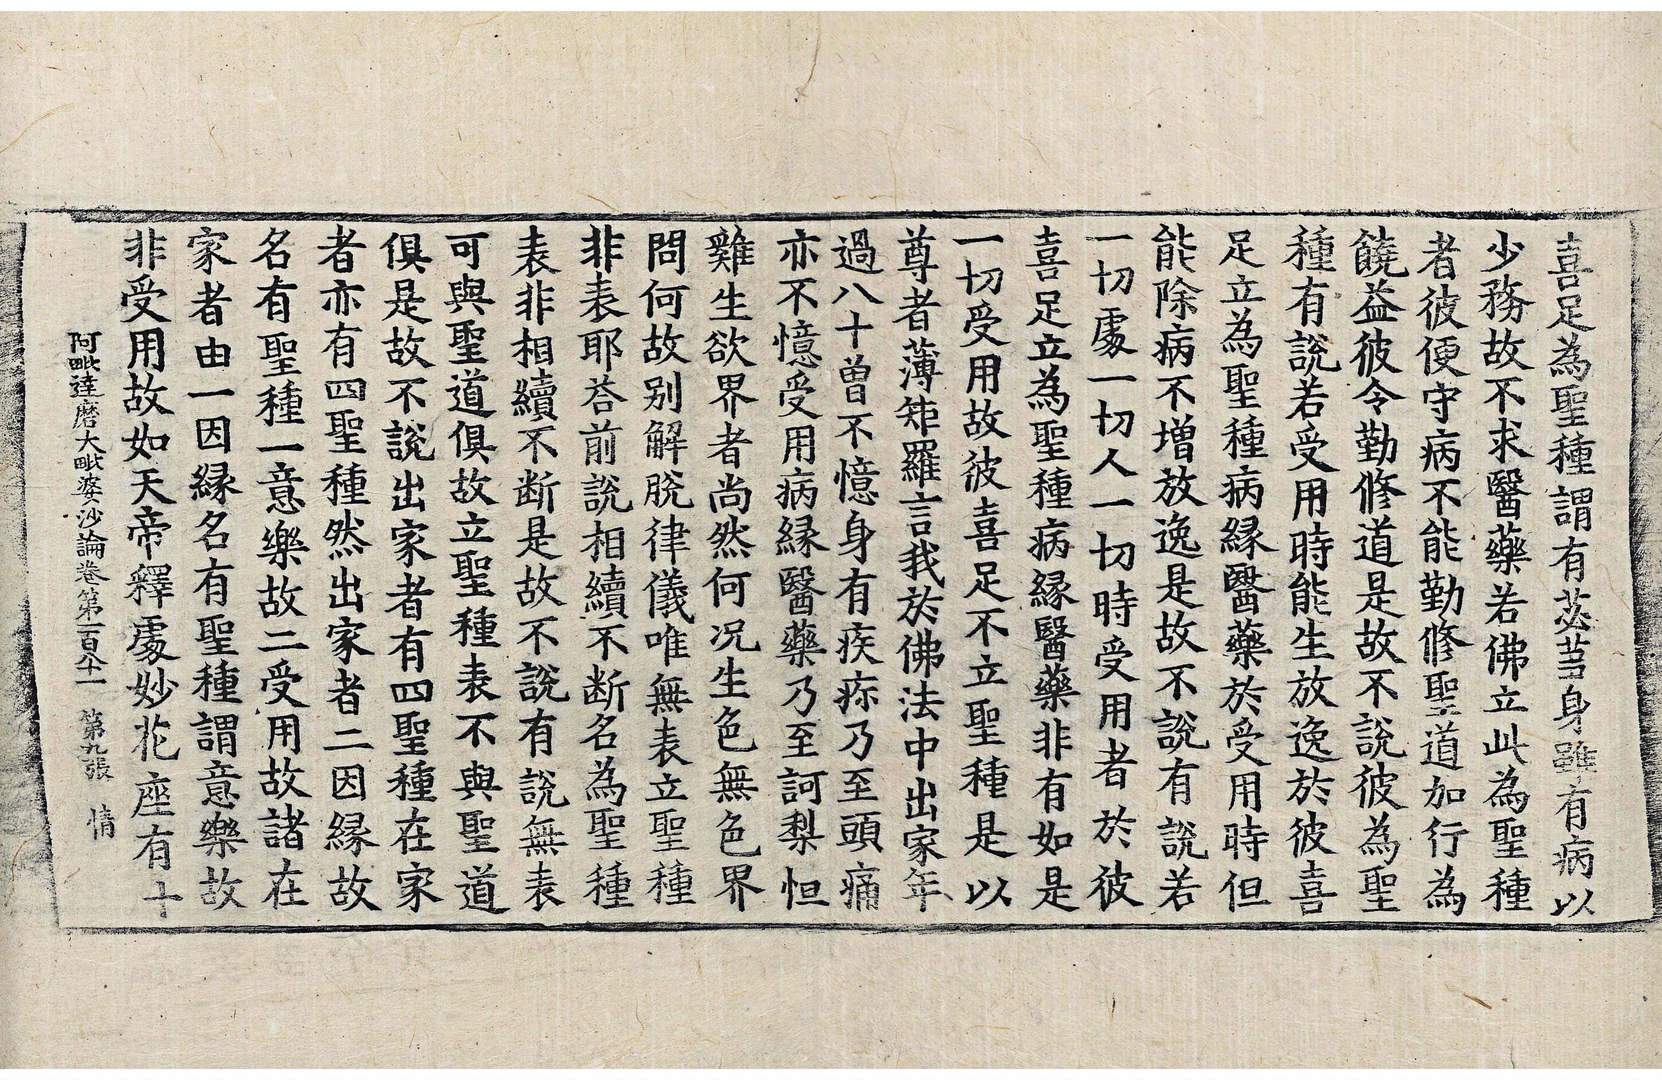 喜足為聖種謂有苾芻身雖有病以
少務故不求醫藥若佛立此為聖種
者彼便守病不能勤修聖道加行為
饒益彼令勤修道是故不說彼為聖
種有說若受用時能生放逸於彼喜
足立為聖種病緣醫藥於受用時但
能除病不增放逸是故不說有說若
一切處一切人一切時受用者於彼
喜足立為聖種病緣醫藥非有如是
一切受用故彼喜足不立聖種是以
尊者薄矩羅言我於佛法中出家年
過八十曾不憶身有疾疹乃至頭痛
亦不憶受用病緣醫藥乃至訶梨怛
雞生欲界者尚然何況生色無色界
問何故別解脫律儀唯無表立聖種
非表耶荅前說相續不断名為聖種
表非相續不断是故不說有說無表
可與聖道俱故立聖種表不與聖道
俱是故不說出家者有四聖種在家
者亦有四聖種然出家者二因緣故
名有聖種一意樂故二受用故諸在
家者由一因緣名有聖種謂意樂故
非受用故如天帝釋處妙花座有十
阿毗達磨大毗婆沙論卷第一百八十一 第九張 情